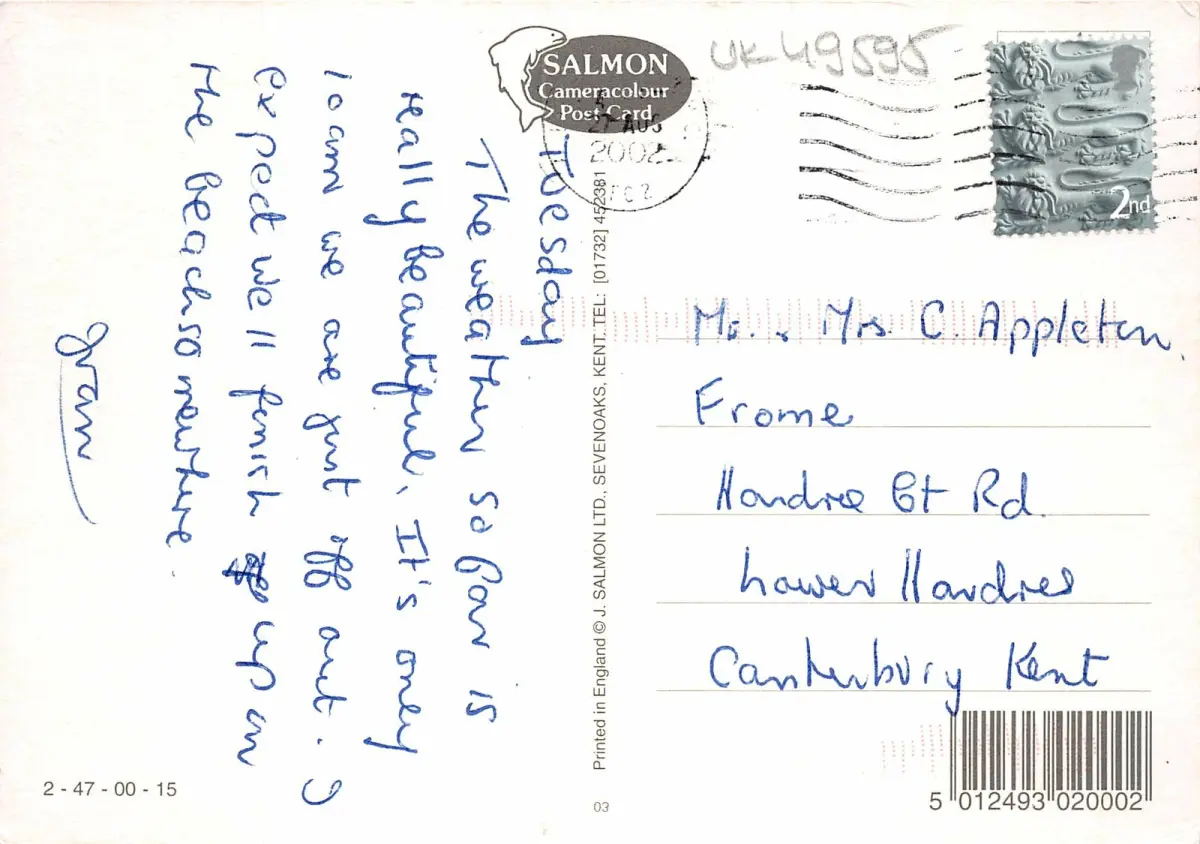 SALMON
Cameracolour
Post Card
UK 49595
27 AUG
2002
2nd
Tuesday
The weather so far is
really beautiful. It's only
10am we are just off out. I
expect we'll finish up on
the beach somewhere.
Mr. & Mrs C. Appleton.
Frome
Hardres Ct Rd.
Lower Hardres
Canterbury Kent
Printed in England © J. SALMON LTD., SEVENOAKS, KENT. TEL: [01732] 452381
2 - 47 - 00 - 15
03
5 012493 020002